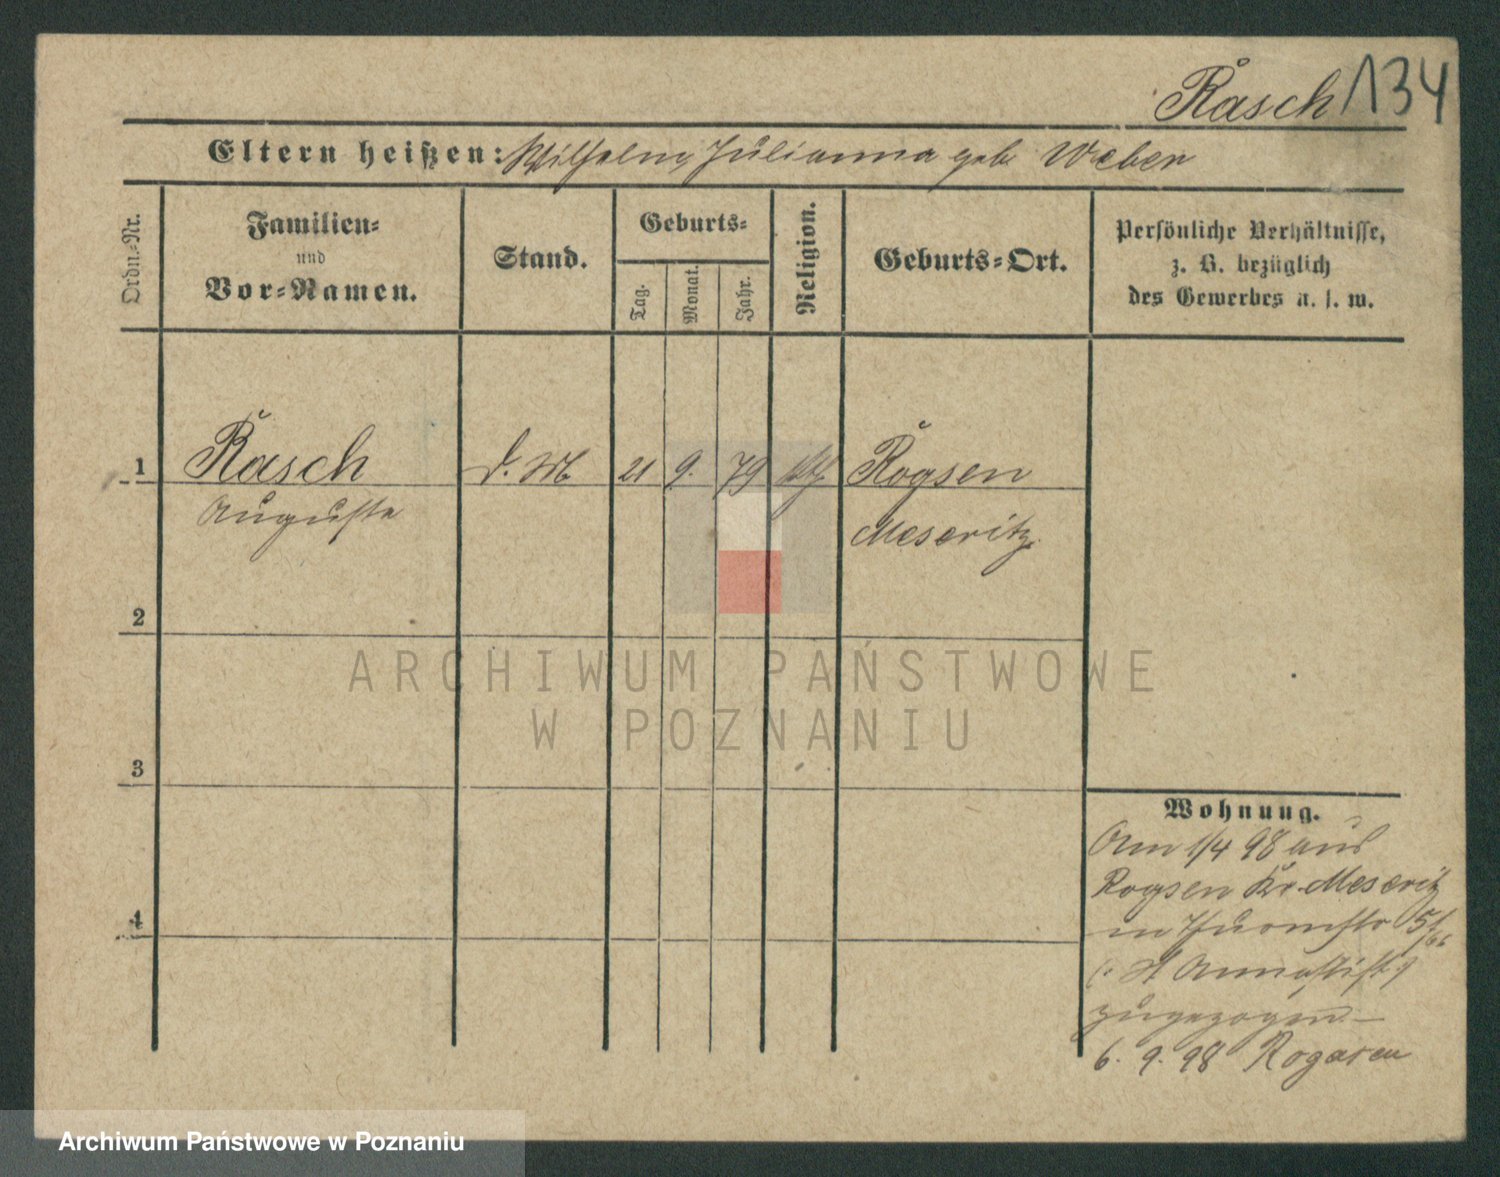 Rasch 134
Eltern heißen: Wilhelm, Julianna geb. Weber
Ordn.-Nr.
Familien-
und
Vor-Namen.
Stand.
Geburts-
Tag.
Monat.
Jahr.
Religion.
Geburts-Ort.
Persönliche Verhältnisse,
z. B. bezüglich
des Gewerbes u. s. w.
1 Rasch d. M 21 9. 79 Rogsen
Auguste Meseritz
2
3
4
Wohnung.
Am 1/4 98 aus
Rogsen Kr. Meseritz
in Thurmstr 5/66
(: St Annastift :)
zugezogen. —
6. 9. 98 Rogasen
ARCHIWUM PAŃSTWOWE
W POZNANIU
Archiwum Państwowe w Poznaniu